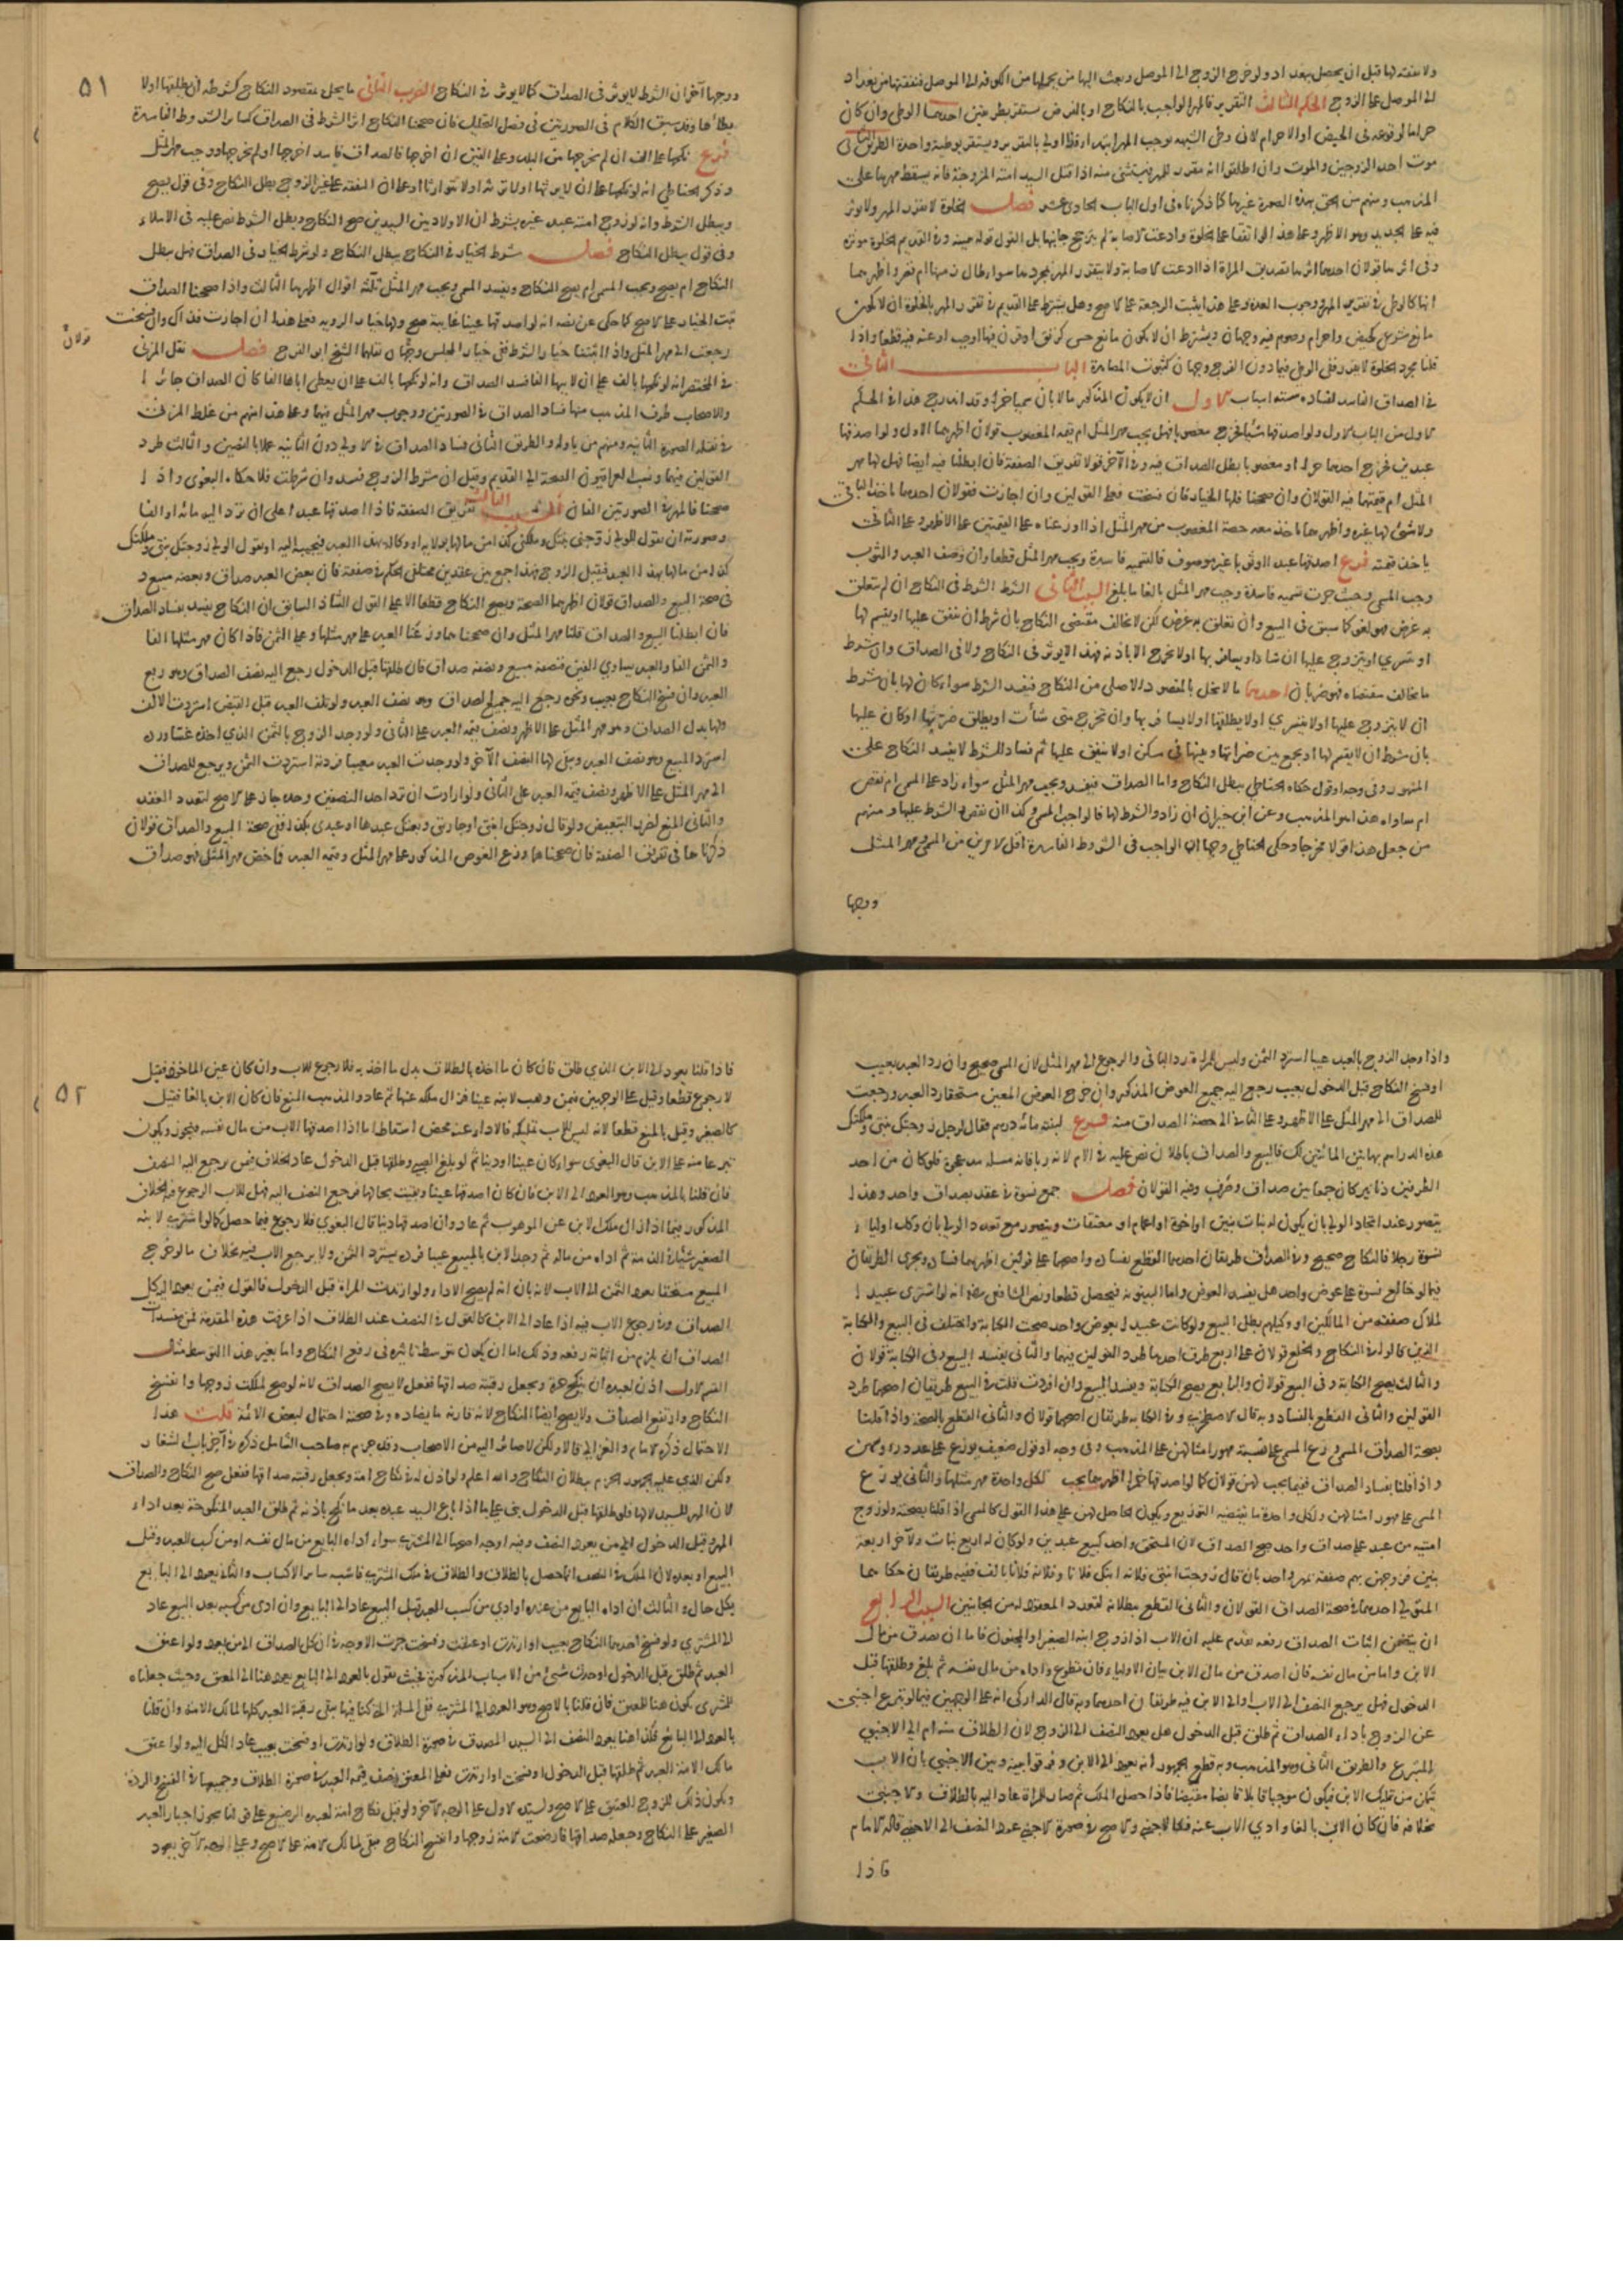 ولا نفقة لها قبل ان يحصل ببغداد ولو خرج الزوج الى الموصل وبعث اليها من يحملها من الكوفة الى الموصل فنفقتها من بغداد
الى الموصل على الزوج الحكم الثالث التقرير فالمهر الواجب بالنكاح او بالفرض يستقر بطريقين احدهما الوطئ وان كان
حراما لوقوعه في الحيض او الاحرام لان وطئ الشبهة يوجب المهر ابتداء فذا اولى بالتقرير ويستقر بوطئة واحدة الطريق الثاني
موت احد الزوجين والموت وان اطلقوا انه مقرر للمهر فيستثنى منه اذا قتل السيد امته المزوجة فانه يسقط مهرها على
المذهب وسهم من الحق بهذه الصورة غيرها كما ذكرناه في اول الباب الحادي عشر فصل الخلوة لا تقرر المهر ولا تؤثر
فيه على الجديد وهو الاظهر وعلى هذا لو اتفقا على الخلوة وادعت الاصابة لم يترجح جانبها بل القول قوله بيمينه وفي القديم الخلوة مؤثرة
وفي اثرها قولان احدهما اثرها تصديق المرأة اذا ادعت الاصابة ولا يتقرر المهر بمجردها سواء طال زمنها ام قصر واظهرهما
انها كالوطئ في تقرير المهر ووجوب العدة وعلى هذا تثبت الرجعة على الاصح وهل يشترط على القديم في تقرر المهر بالخلوة ان لا يكون
مانع شرعي كحيض واحرام وصوم فيه وجهان ويشترط ان لا يكون مانع حسي كرتق او قرن فيها او جب او عنة فيه قطعا واذا
قلنا مجرد الخلوة لا يقرر ففي الوطئ فيما دون الفرج وجهان كثبوت المصاهرة الباب الثاني
في الصداق الفاسد لفساده ستة اسباب الاول ان لا يكون المذكور مالا بان سميا خمرا وقد اندرج هذا في الحكم
الاول من الباب الاول ولو اصدقها شيئا فخرج مغصوبا فهل يجب مهر المثل ام قيمة المغصوب قولان اظهرهما الاول ولو اصدقها
عبدين فخرج احدهما حرا او مغصوبا بطل الصداق فيه وفي الآخر قولا تفريق الصفقة فان ابطلنا فيه ايضا فهل لها مهر
المثل ام قيمتهما فيه القولان وان صححنا فلها الخيار فان فسخت فعلى القولين وان اجازت فقولان احدهما تأخذ الباقي
ولا شئ لها غيره واظهرهما تاخذ معه حصة المغصوب من مهر المثل اذا وزعناه على القيمتين على الاظهر وعلى الثاني
ياخذ قيمته فرع اصدقها عبدا او ثوبا غير موصوف فالتسمية فاسدة ويجب مهر المثل قطعا وان وصف العبد والثوب
وجب المسمى وحيث جرت تسمية فاسدة وجب مهر المثل بالغا ما بلغ السبب الثاني الشرط الشرط في النكاح ان لم يتعلق
به غرض فهو لغو كما سبق في البيع وان تعلق به غرض لكن لا يخالف مقتضى النكاح بان شرط ان ينفق عليها او يقسم لها
او يتسرى او يتزوج عليها ان شاء او يسافر بها او لا تخرج الا باذنه فهذا لا يؤثر في النكاح ولا في الصداق وان شرط
ما يخالف مقتضاه فهو ضربان احدهما ما لا يخل بالمقصود الاصلي من النكاح فيفسد الشرط سواء كان لها بان شرط
ان لا يتزوج عليها او لا يتسرى او لا يطلقها او لا يسافر بها وان تخرج متى شاءت او يطلق ضرتها او كان عليها
بان شرط ان لا يقسم لها او يجمع بين ضراتها وبينها في مسكن او لا ينفق عليها ثم فساد الشرط لا يفسد النكاح على
المشهور وفي وجه او قول حكاه الحناطي يبطل النكاح واما الصداق فيفسد ويجب مهر المثل سواء زاد على المسمى ام نقص
ام ساواه هذا هو المذهب وعن ابن خيران ان زاد والشرط لها فالواجب المسمى وكذا ان نقص والشرط عليها ومنهم
من جعل هذا قولا مخرجا وحكى الحناطي وجها ان الواجب في الشروط الفاسدة اقل الامرين من المسمى ومهر المثل
ووجها
٥١
ووجها آخر ان الشرط لا يؤثر في الصداق كما لا يؤثر في النكاح الضرب الثاني ما يخل بمقصود النكاح كشرطه ان يطلقها او لا
يطأها وقد سبق الكلام في الصورتين في فصل التحليل فان صححنا النكاح اثر الشرط في الصداق كسائر الشروط الفاسدة
فرع نكحها على الف ان لم يخرجها من البلد وعلى الفين ان اخرجها فالصداق فاسد اخرجها او لم يخرجها ووجب مهر المثل
وذكر الحناطي انه لو نكحها على ان لا يرثها او لا ترثه او لا يتوارثا او على ان النفقة على غير الزوج بطل النكاح وفي قول يصح
ويبطل الشرط وانه لو زوج امته عبد غيره بشرط ان الاولاد بين السيدين صح النكاح وبطل الشرط نص عليه في الاملاء
وفي قول يبطل النكاح فصل شرط الخيار في النكاح يبطل النكاح ولو شرط الخيار في الصداق فهل يبطل
النكاح ام يصح ويجب المسمى ام يصح النكاح ويفسد المسمى ويجب مهر المثل ثلثة اقوال اظهرها الثالث واذا صححنا الصداق
ثبت الخيار على الاصح كما حكى عن نصه انه لو اصدقها عينا غايبة صح ولها خيار الرؤية فعلى هذا ان اجازت فذاك وان فسخت
رجعت الى مهر المثل واذا اثبتنا خيار الشرط ففي خيار المجلس وجهان نقلهما الشيخ ابو الفرج فصل نقل المزني
قولان
في المختصر انه لو نكحها بالف على ان لابيها الفا فسد الصداق وانه لو نكحها بالف على ان يعطي اباها الفا كان الصداق جائزا
وللاصحاب طرق المذهب منها فساد الصداق في الصورتين ووجوب مهر المثل فيهما وعلى هذا منهم من غلط المزني
في نقله الصورة الثانية ومنهم من تأوله والطريق الثاني فساد الصداق في الاولى دون الثانية عملا بالنصين والثالث طرد
القولين فيهما ونسب العراقيون الصحة الى القديم وقيل ان شرط الزوج فسد وان شرطت فلا حكاه البغوي واذا
صححنا فالمهر في الصورتين الفان السبب الثالث تفريق الصفقة فاذا اصدقها عبدا على ان ترد اليه مائة او الفا
وصورته ان يقول للولي زوجني بنتك وملكني كذا من مالها بولاية او وكالة بهذا العبد فيجيبه اليه او يقول الولي زوجتك بنتي وملكتك
كذا من مالها بهذا العبد فيقبل الزوج فهذا جمع بين عقدين مختلفي الحكم في صفقة فان بعض العبد صداق وبعضه مبيع و
في صحة البيع والصداق قولان اظهرهما الصحة ويصح النكاح قطعا الا على القول الشاذ السابق ان النكاح يفسد بفساد الصداق
فان ابطلنا البيع والصداق فلها مهر المثل وان صححناهما وزعنا العبد على مهر مثلها وعلى الثمن فاذا كان مهر مثلها الفا
والثمن الفا والعبد يساوي الفين فنصفه مبيع ونصفه صداق فان طلقها قبل الدخول رجع اليه نصف الصداق وهو ربع
العبد وان فسخ النكاح بعيب ونحوه رجع اليه جميع الصداق وهو نصف العبد ولو تلف العبد قبل القبض استردت الالف
ولها بدل الصداق وهو مهر المثل على الاظهر ونصف قيمة العبد على الثاني ولو وجد الزوج بالثمن الذي اخذه عيبا ورده
استرد المبيع وهو نصف العبد وبقي لها النصف الآخر ولو وجدت العبد معيبا فردته استردت الثمن ويرجع للصداق
الى مهر المثل على الاظهر ونصف قيمة العبد على الثاني ولو ارادت ان ترد احد النصفين وحده جاز على الاصح لتعدد العقد
والثاني المنع لضرر التبعيض ولو قال زوجتك ابنتي او جاريتي وبعتك عبدها او عبدي بكذا ففي صحة المبيع والصداق قولان
ذكرناهما في تفريق الصفقة فان صححناهما وزع العوض المذكور على مهر المثل وقيمة العبد فما خص مهر المثل فهو صداق
واذا وجد الزوج بالعبد عيبا استرد الثمن وليس للمرأة رد الباقي والرجوع الى مهر المثل لان المسمى صحيح وان رد العبد بعيب
او فسخ النكاح قبل الدخول بعيب رجع اليه جميع العوض المذكور وان خرج العوض المعين مستحقا رد العبد ورجعت
للصداق الى مهر المثل على الاظهر وعلى الثاني الى حصة الصداق منه فرع لبنته مائة درهم فقال لرجل زوجتك بنتي وملكتك
هذه الدراهم بهاتين المائتين لك فالبيع والصداق باطلان نص عليه في الام لانه ربا فانه مسئلة مد عجوة فلو كان من احد
الطرفين دنانير كان جمعا بين صداق وصرف وفيه القولان فصل جمع نسوة في عقد بصداق واحد وهذا
يتصور عند اتحاد الولي بان يكون له بنات بنين او اخوة او اعمام او معتقات ويتصور مع تعدد الولي بان وكل اولياء
نسوة رجلا فالنكاح صحيح وفي الصداق طريقان احدهما القطع بفساده واصحهما على قولين اظهرهما فساده ويجري الطريقان
فيما لو خالع نسوة على عوض واحد هل يفسد العوض واما البينونة فتحصل قطعا ونص الشافعي رضه انه لو اشترى عبيدا
لملاك صفقة من المالكين او وكيلهم بطل البيع ولو كاتب عبيدا له بعوض واحد صحت الكتابة واختلف في البيع والكتابة
الذين كالولد في النكاح والخلع قولان على اربع طرق احدها طرد القولين فيهما والثاني يفسد البيع وفي الكتابة قولان
والثالث يصح الكتابة وفي البيع قولان والرابع يصح الكتابة ويفسد البيع وان افردت قلت في البيع طريقان اصحهما طرد
القولين والثاني القطع بالفساد وبه قال الاصطخري وفي الكتابة طريقان اصحهما قولان والثاني القطع بالصحة واذا قلنا
بصحة الصداق المسمى وزع المسمى على نسبة مهور امثالهن على المذهب وفي وجه او قول ضعيف يوزع على عدد رؤسهن
واذا قلنا بفساد الصداق فيما يجب لهن قولان كما لو اصدقها خمرا اظهرهما يجب لكل واحدة مهر مثلها والثاني يوزع
المسمى على مهور امثالهن ولكل واحدة ما يقتضيه التوزيع ويكون الحاصل لهن على هذا القول كالمسمى اذا قلنا بصحته ولو زوج
امتيه من عبد على صداق واحد صح الصداق لان المستحق واحد كبيع عبدين ولو كان له اربع بنات ولآخر اربعة
بنين فزوجهن بهم صفقة بمهر واحد بان قال زوجت ابنتي فلانة ابنك فلانا وفلانة فلانا بالف ففيه طريقان حكاهما
المتولي احدهما في صحة الصداق القولان والثاني القطع ببطلانه لتعدد المعقود له من الجانبين السبب الرابع
ان يتضمن اثبات الصداق رفعه تقدم عليه ان الاب اذا زوج ابنه الصغير او المجنون فاما ان يصدق من مال
الابن واما من مال نفسه فان اصدق من مال الابن بيان الاولياء فان تطوع واداه من مال نفسه ثم بلغ وطلقها قبل
الدخول فهل يرجع النصف الى الاب او الى الابن فيه طريقان احدهما وبه قال الداركي انه على الوجهين فيما لو تبرع اجنبي
عن الزوج باداء الصداق ثم طلق قبل الدخول هل يعود النصف الى الزوج لان الطلاق منه ام الى الاجنبي
المتبرع والطريق الثاني وهو المذهب وبه قطع الجمهور انه يعود الى الابن وفرقوا بينه وبين الاجنبي بان الاب
يتمكن من تمليك الابن فيكون موجبا قابلا قابضا مقبضا فاذا حصل الملك ثم صار للمرأة عاد اليه بالطلاق والاجنبي
بخلافه فان كان الابن بالغا وادى الاب عنه فكالاجنبي والاصح في صورة الاجنبي عود النصف الى الاجنبي قاله الامام
فاذا
٥٢
فاذا قلنا يعود الى الابن الذي طلق فان كان ما اخذه بالطلاق بدل ما اخذ به فلا رجوع للاب وان كان عين الماخوذ فقيل
لا رجوع قطعا وقيل على الوجهين فيمن وهب لابنه عينا فزال ملكه عنها ثم عاد والمذهب المنع فان كان الابن بالغا فقيل
كالصغير وقيل بالمنع قطعا لانه ليس للاب تمليكه فالاداء عنه محض اسقاط اما اذا اصدقها الاب من مال نفسه فيجوز ويكون
تبرعا منه على الابن قال البغوي سواء كان عينا او دينا ثم لو بلغ الصبي وطلقها قبل الدخول عاد الخلاف فيمن يرجع اليه النصف
فان قلنا بالمذهب وهو العود الى الابن فان كان اصدقها عينا وبقيت بحالها فرجع النصف اليه فهل للاب الرجوع فيه الخلاف
المذكور فيما اذا زال ملك الابن عن الموهوب ثم عاد وان اصدقها دينا قال البغوي فلا رجوع فيما حصل كما لو اشترى لابنه
الصغير شيئا في الذمة ثم اداه من ماله ثم وجد الابن بالمبيع عيبا فرده يسترد الثمن ولا يرجع الاب فيه بخلاف ما لو خرج
المبيع مستحقا يعود الثمن الى الاب لانه بان انه لم يصح الاداء ولو ارتدت المرأة قبل الدخول فالقول فيمن يعود اليه كل
الصداق وفي رجوع الاب فيه اذا عاد الى الابن كالقول في النصف عند الطلاق اذا عرفت هذه المقدمة فمن مفسدات
الصداق ان يلزم من اثباته رفعه وذلك اما ان يكون بتوسط تاثيره في رفع النكاح واما بغير هذا التوسط مثال
القسم الاول اذن لعبده ان ينكح حرة ويجعل رقبته صداقها ففعل لا يصح الصداق لانه لو صح لملكت زوجها وانفسخ
النكاح وارتفع الصداق ولا يصح ايضا النكاح لانه قارنه ما يضاده وفي صحته احتمال لبعض الائمة قلت هذا
الاحتمال ذكره الامام والغزالي قالا ولكن لا صائر اليه من الاصحاب وقد جزم به صاحب الشامل ذكره في آخر باب الشغار
ولكن الذي عليه الجمهور الجزم ببطلان النكاح والله اعلم ولو اذن له في نكاح امة ويجعل رقبته صداقها ففعل صح النكاح والصداق
لان المهر للسيد لا لها فلو طلقها قبل الدخول بني على ما اذا باع السيد عبده بعد ما نكح باذنه ثم طلق العبد المنكوحة بعد اداء
المهر وقبل الدخول الى من يعود النصف وفيه اوجه اصحها الى المشتري سواء اداه البايع من مال نفسه او من كسب العبد وقبل
البيع او بعده لان الملك في النصف انما حصل بالطلاق والطلاق في ملك المشتري فاشبه سائر الاكساب والثاني يعود الى البايع
بكل حال والثالث ان اداه البايع من عنده او ادى من كسب العبد قبل البيع عاد الى البايع وان ادى من كسبه بعد البيع عاد
الى المشتري ولو فسخ احدهما النكاح بعيب او ارتدت او عتقت وفسخت جرت الاوجه في ان كل الصداق الى من يعود ولو اعتق
العبد ثم طلق قبل الدخول او حدث شئ من الاسباب المذكورة فحيث نقول بالعود الى البايع يعود هنا الى المعتق وحيث جعلناه
للمشتري يكون هنا للمعتق فان قلنا بالاصح وهو العود الى المشتري ففي المسئلة التي كنا فيها يبقى رقبة العبد كلها لمالك الامة وان قلنا
بالعود الى البايع فكذا هنا يعود النصف الى السيد المصدق في صورة الطلاق ولو ارتدت او فسخت بعيب عاد الكل اليه ولو اعتق
مالك الامة العبد ثم طلقها قبل الدخول او فسخت او ارتدت فعلى المعتق نصف قيمة العبد في صورة الطلاق وجميعها في الفسخ والردة
ويكون ذلك للزوج المعتق على الاصح ولسيده الاول على الوجه الآخر ولو قبل نكاح امة لعبده الرضيع على قولنا يجوز اجبار العبد
الصغير على النكاح وجعله صداقها فارضعت الامة زوجها وانفسخ النكاح بقي لمالك الامة على الاصح وعلى الوجه الآخر يعود